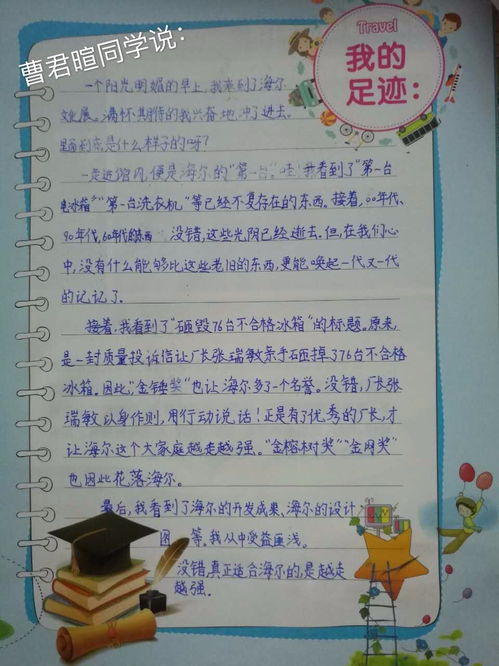 曹君暄同学说：
Travel
我的
足迹：
一个阳光明媚的早上，我来到了海尔
文化展。满怀期待的我兴奋地冲了进去。
里面到底是什么样子的呀？
一走进馆内，便是海尔的“第一台”。哇！我看到了“第一台
电冰箱”“第一台洗衣机”等已经不复存在的东西。接着，00年代、
90年代，60年代的东西 没错，这些光阴已经逝去。但，在我们心
中，没有什么能够比这些老旧的东西，更能唤起一代又一代
的记记了。
接着，我看到了“砸毁76台不合格冰箱”的标题。原来，
是一封质量投诉信让厂长张瑞敏亲手砸掉了76台不合格
冰箱。因此，“金锤奖”也让海尔多了一个名誉。没错，厂长张
瑞敏以身作则，用行动说话！正是有了优秀的厂长，才
让海尔这个大家庭越走越强。“金榕树奖”“金网奖”
也因此花落海尔。
最后，我看到了海尔的开发成果、海尔的设计
图 等。我从中受益匪浅。
没错，真正适合海尔的，是越走
越强。